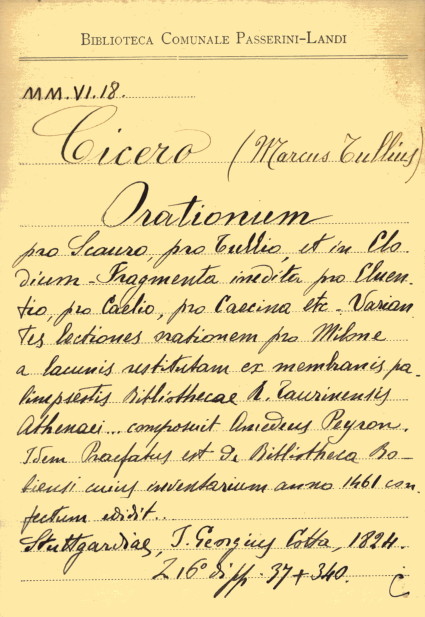 BIBLIOTECA COMUNALE PASSERINI-LANDI
MM.VI.18.
Cicero (Marcus Tullius)
Orationum
pro Scauro, pro Tullio, et in Clo-
dium - Fragmenta inedita pro Cluen-
tio, pro Caelio, pro Caecina etc - Varian-
tes lectiones orationem pro Milone
a lacunis restitutam ex membranis pa-
limpsestis Bibliothecae R. Taurinensis
Athenaei... composuit Amedeus Peyron.
Idem Praefatus est de Bibliotheca Bo-
biensi cuius inventarium anno 1461 con-
fectum edidit..
Stuttgardiae, J. Georgius Cotta, 1824.
16° pp. 37 + 340.